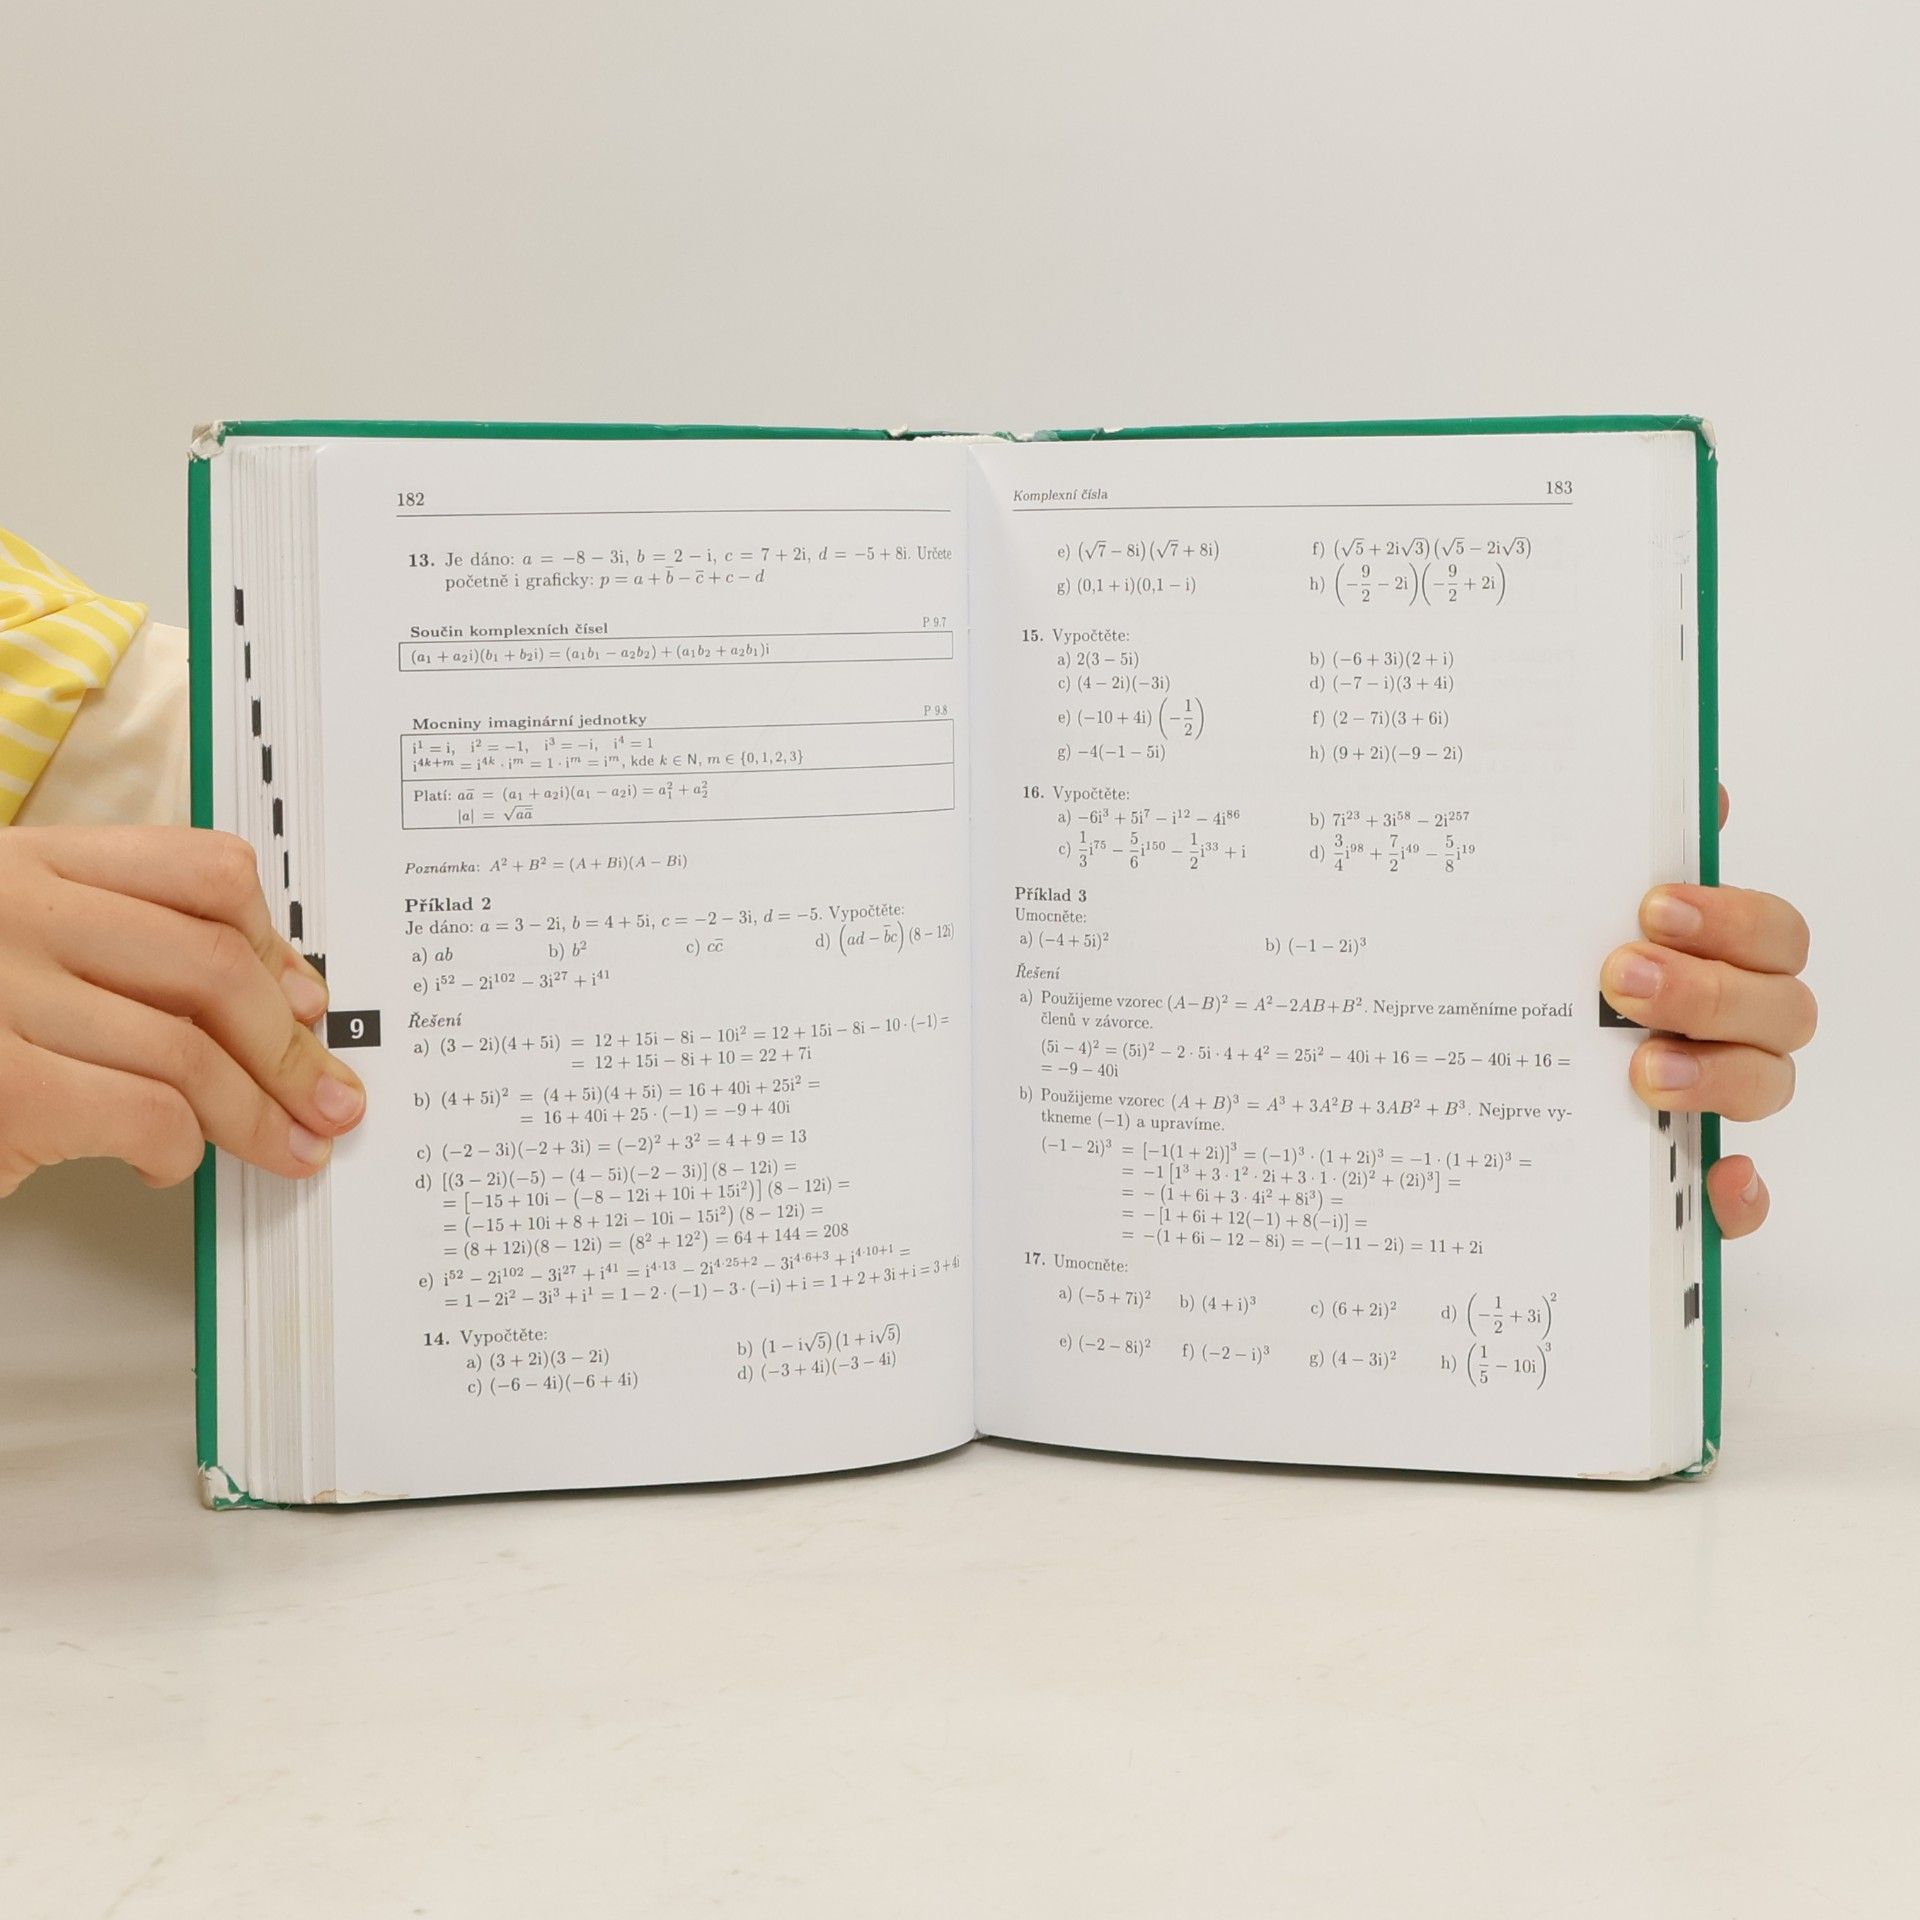 182
13. Je dáno: a = −8 − 3i, b = 2 − i, c = 7 + 2i, d = −5 + 8i. Určete
početně i graficky: p = a + b̄ − c̄ + c − d
Součin komplexních čísel P 9.7
(a₁ + a₂i)(b₁ + b₂i) = (a₁b₁ − a₂b₂) + (a₁b₂ + a₂b₁)i
Mocniny imaginární jednotky P 9.8
i¹ = i, i² = −1, i³ = −i, i⁴ = 1
i⁴ᵏ⁺ᵐ = i⁴ᵏ · iᵐ = 1 · iᵐ = iᵐ, kde k ∈ N, m ∈ {0, 1, 2, 3}
Platí: aā = (a₁ + a₂i)(a₁ − a₂i) = a₁² + a₂²
|a| = √(aā)
Poznámka: A² + B² = (A + Bi)(A − Bi)
Příklad 2
Je dáno: a = 3 − 2i, b = 4 + 5i, c = −2 − 3i, d = −5. Vypočtěte:
a) ab b) b² c) cc̄ d) (ad − b̄c)(8 − 12i)
e) i⁵² − 2i¹⁰² − 3i²⁷ + i⁴¹
Řešení
a) (3 − 2i)(4 + 5i) = 12 + 15i − 8i − 10i² = 12 + 15i − 8i − 10 · (−1) =
= 12 + 15i − 8i + 10 = 22 + 7i
b) (4 + 5i)² = (4 + 5i)(4 + 5i) = 16 + 40i + 25i² =
= 16 + 40i + 25 · (−1) = −9 + 40i
c) (−2 − 3i)(−2 + 3i) = (−2)² + 3² = 4 + 9 = 13
d) [(3 − 2i)(−5) − (4 − 5i)(−2 − 3i)] (8 − 12i) =
= [−15 + 10i − (−8 − 12i + 10i + 15i²)] (8 − 12i) =
= (−15 + 10i + 8 + 12i − 10i − 15i²) (8 − 12i) =
= (8 + 12i)(8 − 12i) = (8² + 12²) = 64 + 144 = 208
e) i⁵² − 2i¹⁰² − 3i²⁷ + i⁴¹ = i⁴·¹³ − 2i⁴·²⁵⁺² − 3i⁴·⁶⁺³ + i⁴·¹⁰⁺¹ =
= 1 − 2i² − 3i³ + i¹ = 1 − 2 · (−1) − 3 · (−i) + i = 1 + 2 + 3i + i = 3 + 4i
14. Vypočtěte:
a) (3 + 2i)(3 − 2i) b) (1 − i√5)(1 + i√5)
c) (−6 − 4i)(−6 + 4i) d) (−3 + 4i)(−3 − 4i)
9
Komplexní čísla 183
e) (√7 − 8i)(√7 + 8i) f) (√5 + 2i√3)(√5 − 2i√3)
g) (0,1 + i)(0,1 − i) h) (−9/2 − 2i)(−9/2 + 2i)
15. Vypočtěte:
a) 2(3 − 5i) b) (−6 + 3i)(2 + i)
c) (4 − 2i)(−3i) d) (−7 − i)(3 + 4i)
e) (−10 + 4i)(−1/2) f) (2 − 7i)(3 + 6i)
g) −4(−1 − 5i) h) (9 + 2i)(−9 − 2i)
16. Vypočtěte:
a) −6i³ + 5i⁷ − i¹² − 4i⁸⁶ b) 7i²³ + 3i⁵⁸ − 2i²⁵⁷
c) 1/3 i⁷⁵ − 5/6 i¹⁵⁰ − 1/2 i³³ + i d) 3/4 i⁹⁸ + 7/2 i⁴⁹ − 5/8 i¹⁹
Příklad 3
Umocněte:
a) (−4 + 5i)² b) (−1 − 2i)³
Řešení
a) Použijeme vzorec (A−B)² = A²−2AB+B². Nejprve zaměníme pořadí
členů v závorce.
(5i − 4)² = (5i)² − 2 · 5i · 4 + 4² = 25i² − 40i + 16 = −25 − 40i + 16 =
= −9 − 40i
b) Použijeme vzorec (A + B)³ = A³ + 3A²B + 3AB² + B³. Nejprve vy-
tkneme (−1) a upravíme.
(−1 − 2i)³ = [−1(1 + 2i)]³ = (−1)³ · (1 + 2i)³ = −1 · (1 + 2i)³ =
= −1 [1³ + 3 · 1² · 2i + 3 · 1 · (2i)² + (2i)³] =
= − (1 + 6i + 3 · 4i² + 8i³) =
= − [1 + 6i + 12(−1) + 8(−i)] =
= −(1 + 6i − 12 − 8i) = −(−11 − 2i) = 11 + 2i
17. Umocněte:
a) (−5 + 7i)² b) (4 + i)³ c) (6 + 2i)² d) (−1/2 + 3i)²
e) (−2 − 8i)² f) (−2 − i)³ g) (4 − 3i)² h) (1/5 − 10i)³